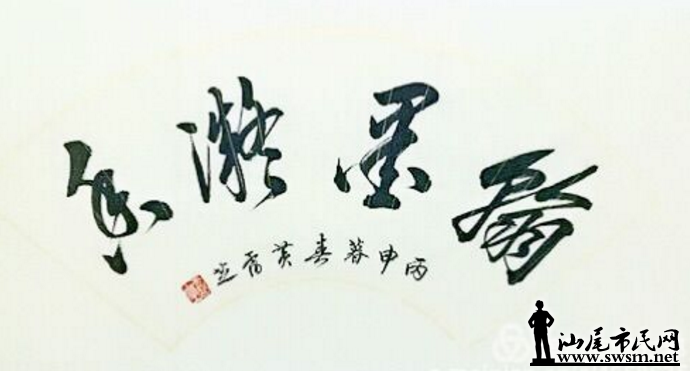 扇墨凝香
丙申暮春黄
汕尾市民网
www.swsm.net